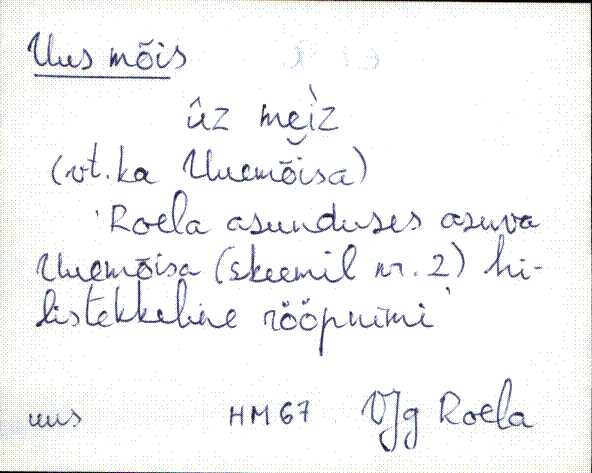 Uus mõis
ûz mei̯z
(vt. ka Uuemõisa)
'Roela asunduses asuva
Uuemõisa (skeemil nr. 2) hi-
listekkeline rööpnimi'
uus HM 67 VJg Roela